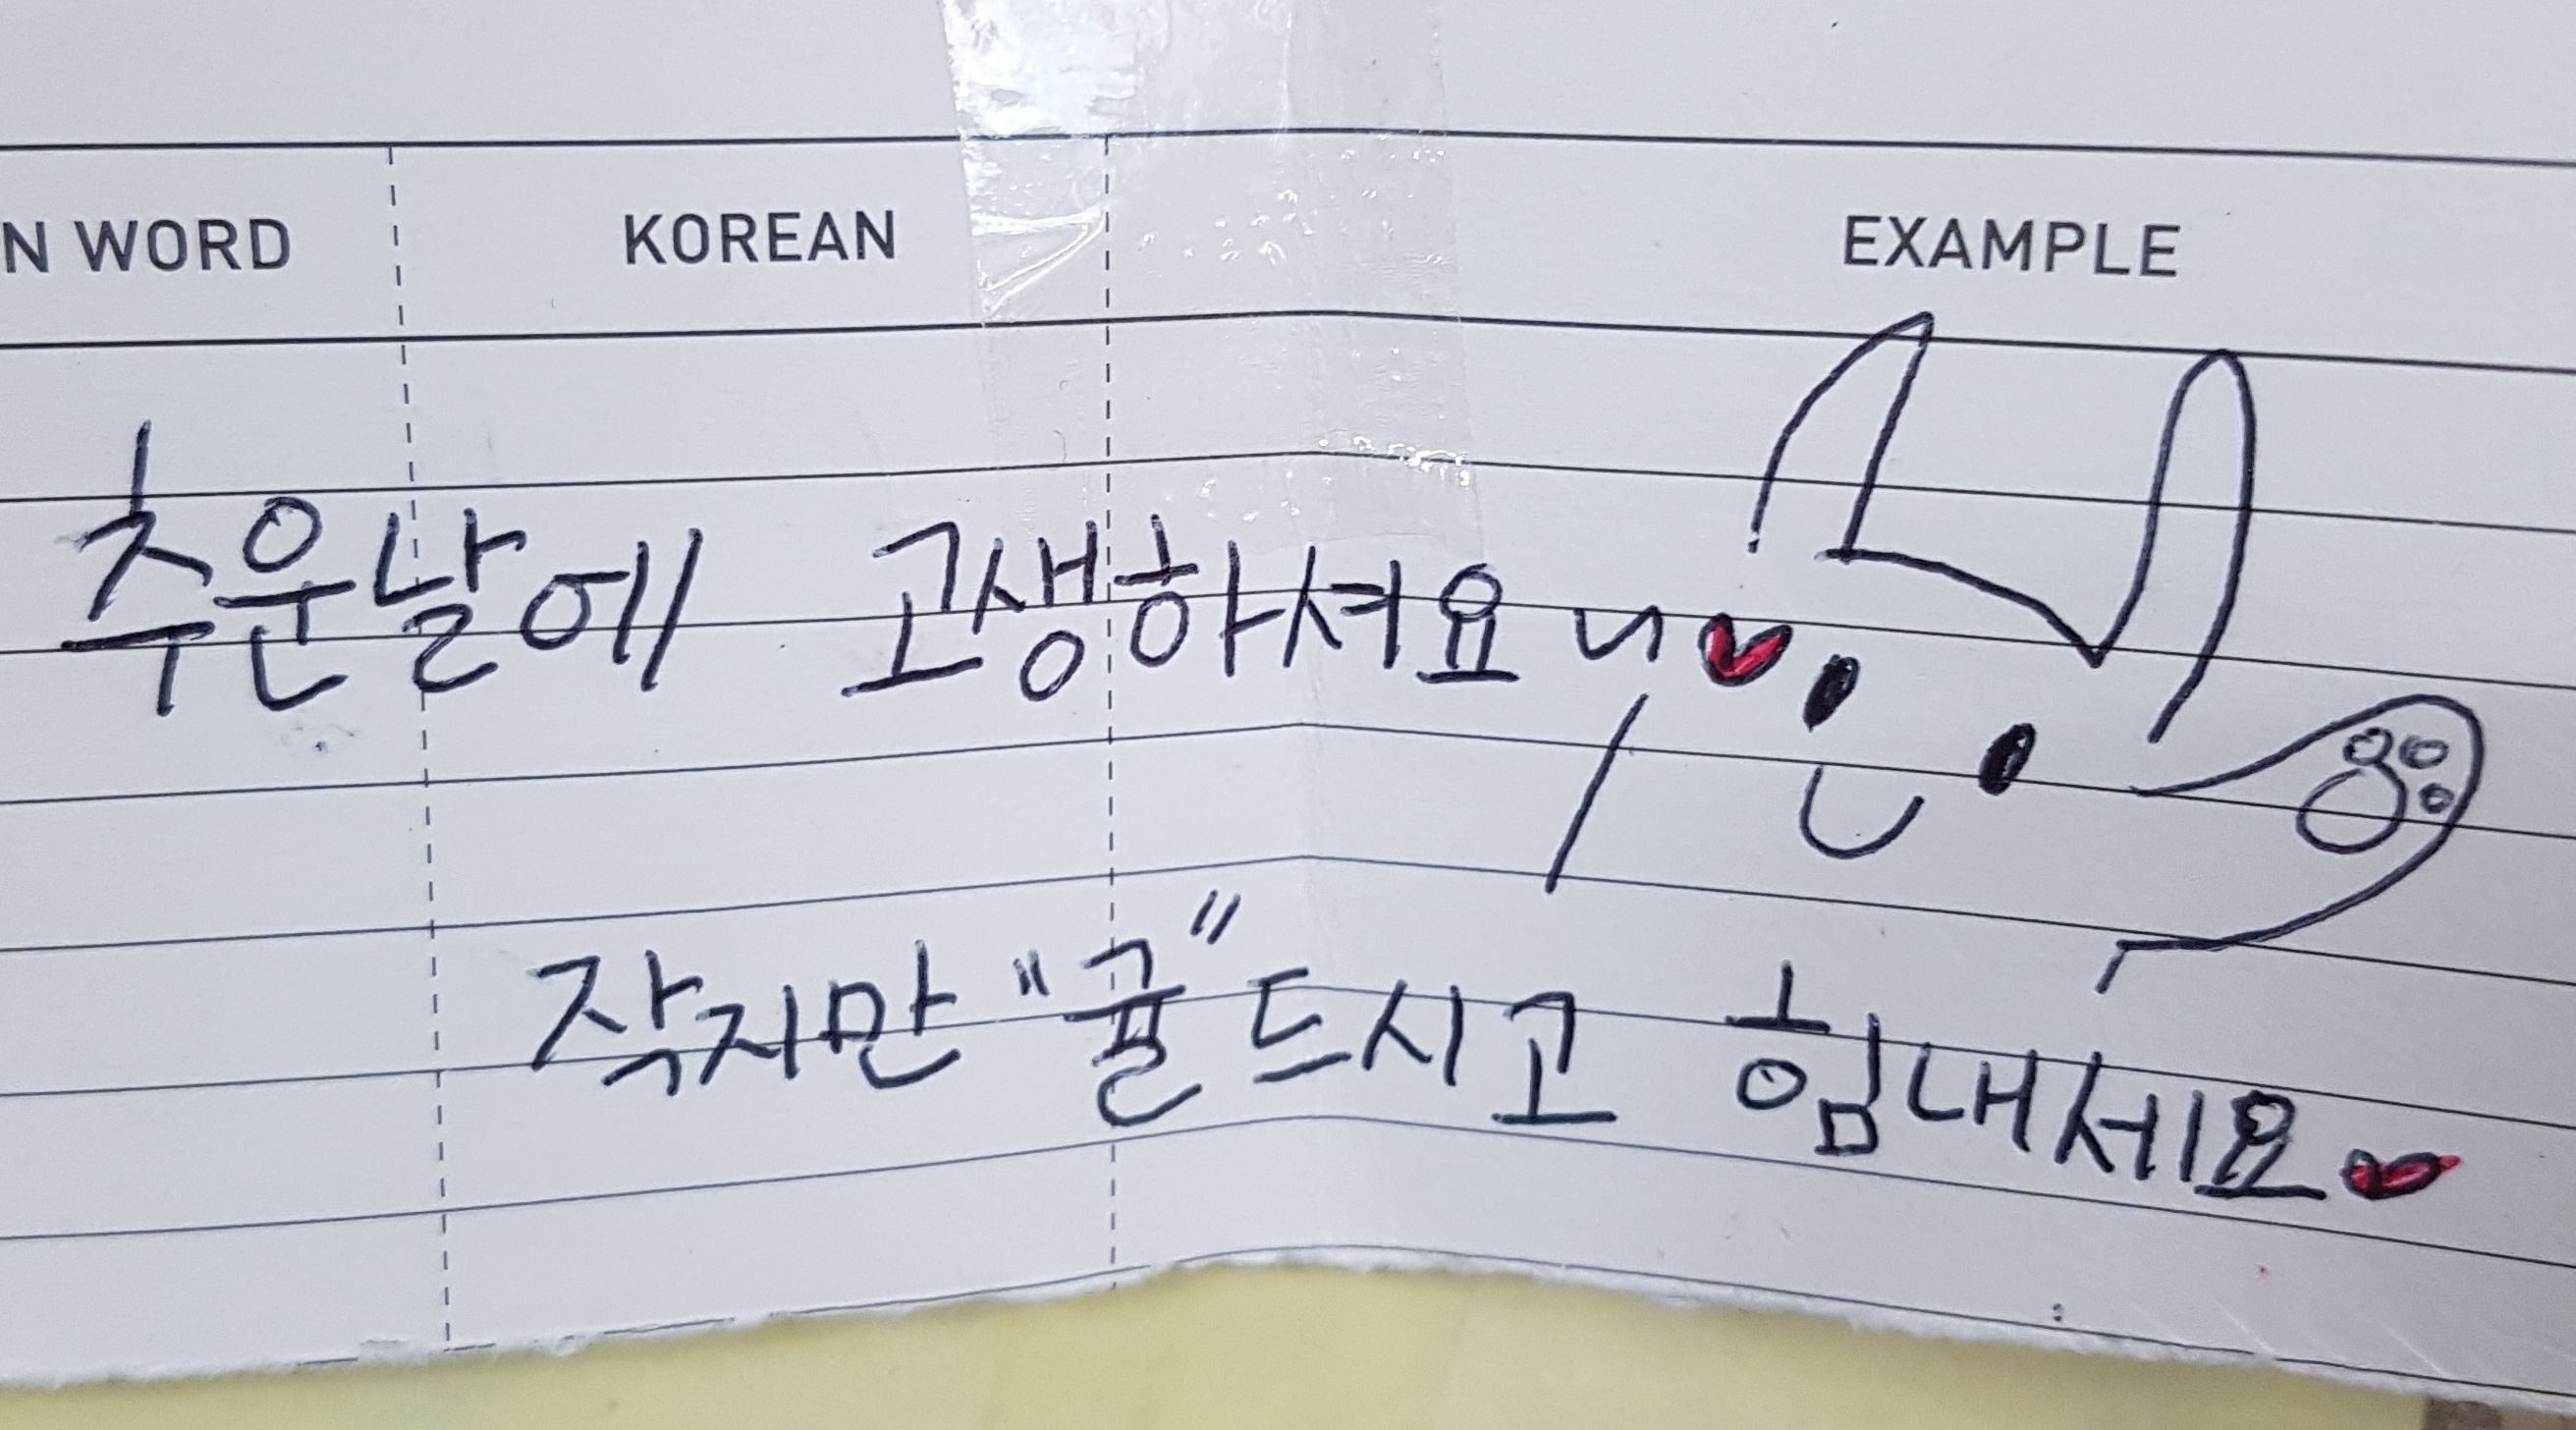 N WORD KOREAN EXAMPLE
추운날에 고생하셔요
작지만 "귤" 드시고 힘내세요